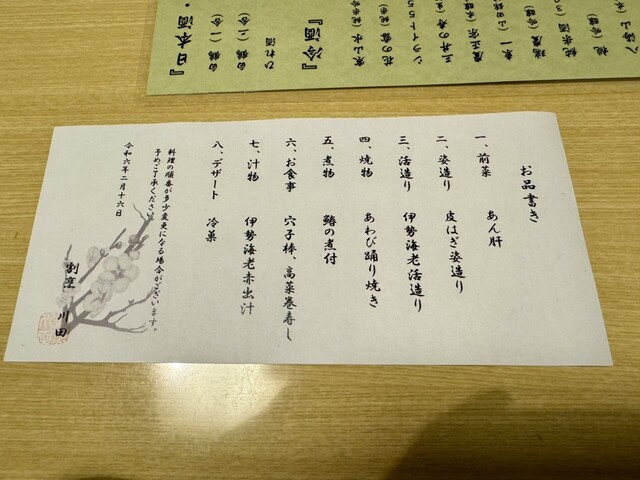 お品書き
一、前菜 あん肝
二、姿造り 皮はぎ姿造り
三、活造り 伊勢海老活造り
四、焼物 あわび踊り焼き
五、煮物 鰆の煮付
六、お食事 穴子棒、高菜巻寿し
七、汁物 伊勢海老赤出汁
八、デザート 冷菓
料理の順番が多少変更になる場合がございます。
予めご了承ください。
令和六年二月十六日
割烹 川田
『日本酒・
白鶴（一合）
白鶴（二合）
ひれ酒
『冷酒』